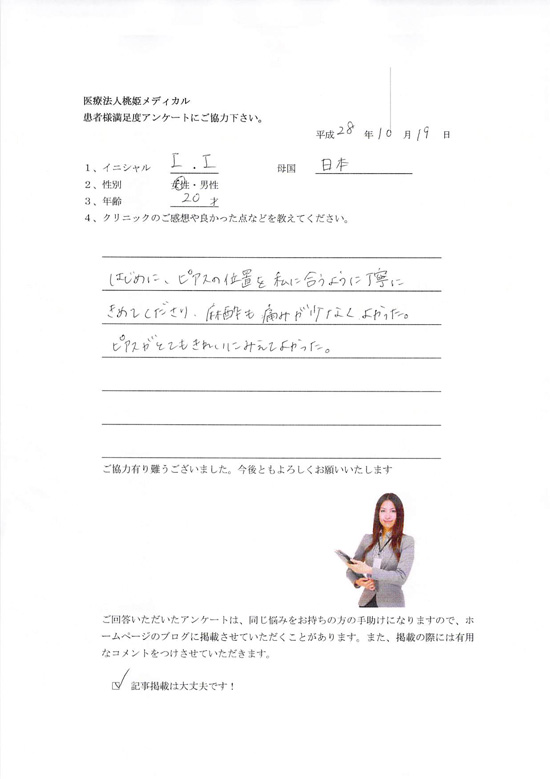 医療法人桃姫メディカル
患者様満足度アンケートにご協力下さい。
平成28年10月19日
1、イニシャル I.I 母国 日本
2、性別 女性・男性
3、年齢 20才
4、クリニックのご感想や良かった点などを教えてください。
はじめに、ピアスの位置を私に合うように丁寧に
きめてくださり、麻酔も痛みが少なくよかった。
ピアスがとてもきれいにみえてよかった。
ご協力有り難うございました。今後ともよろしくお願いいたします
ご回答いただいたアンケートは、同じ悩みをお持ちの方の手助けになりますので、ホ
ームページのブログに掲載させていただくことがあります。また、掲載の際には有用
なコメントをつけさせていただきます。
☑ 記事掲載は大丈夫です！